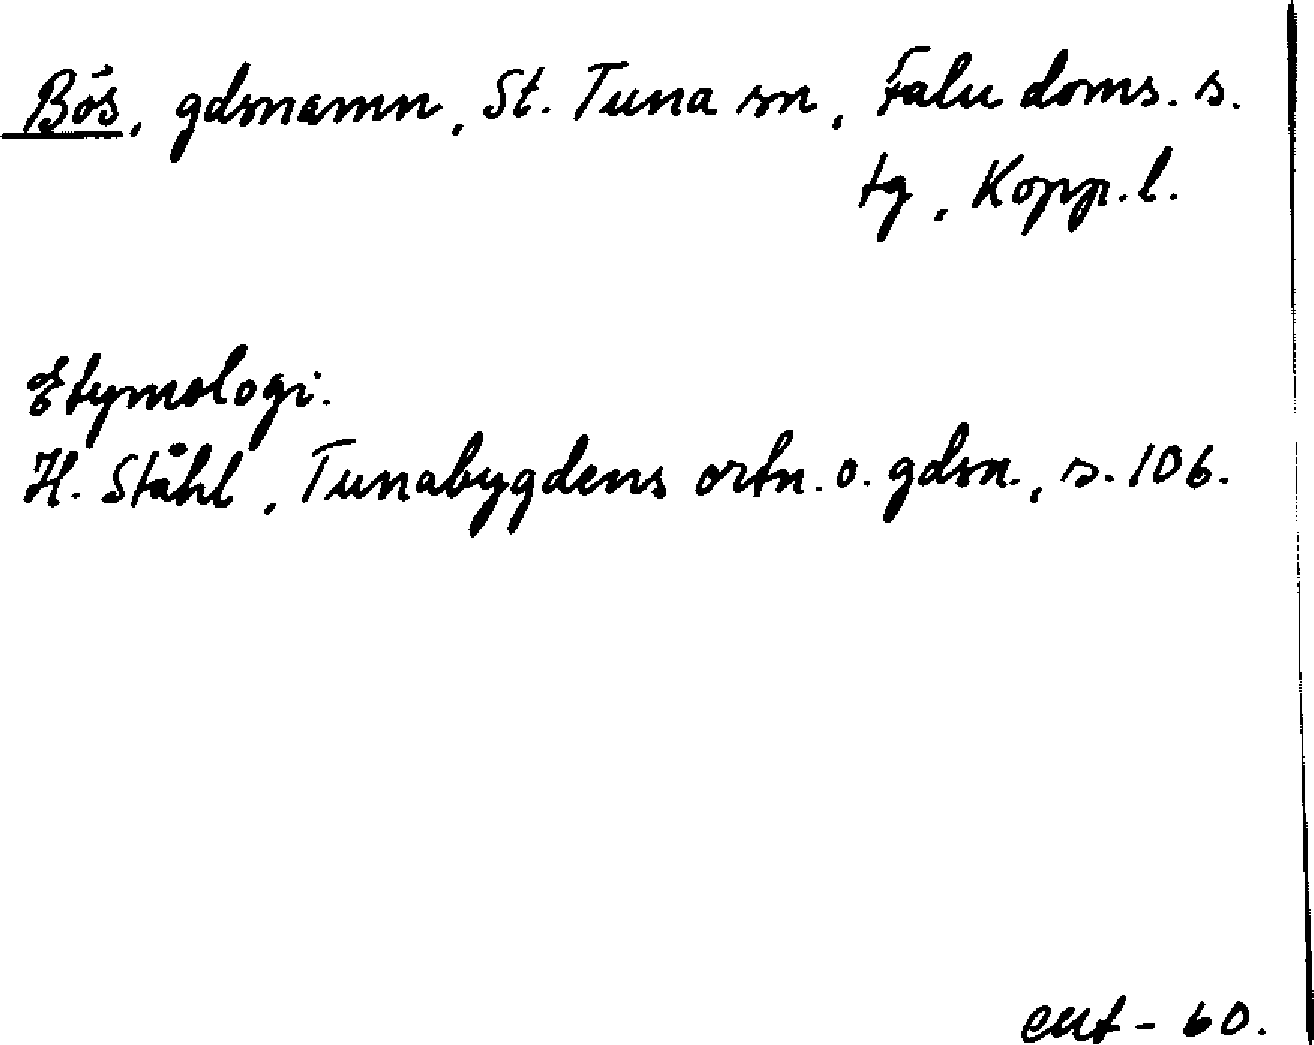 Bös, gdsnamn, St. Tuna sn, Falu doms. s.
tg, Kopp. l.
Etymologi.
H. Ståhl, Tunabygdens ortn. o. gdsn., s. 106.
60.